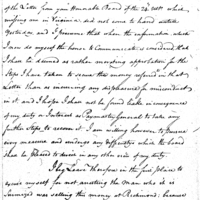 of the Letter from your Honorable Board of the 24 Ult. which
respecting me in Virginia did not come to hand untill
Yesterday and I presume that when the information which
I can do myself the honor to communicate is considered that
I shall be deemed as rather meriting approbation for the
Steps I have taken to secure the money referred in that
Letter than as incurring any displeasure for misconduct
in it, and I hope I shall not be found lacking in consequence
of my duty as Paymaster General to take any
further Steps to secure it. I am willing however to pursue
every measure and undergo any difficulties which the board
shall be pleased to direct in any other view of my duty.
I beg Leave therefore in the first place to
excuse myself for not arresting the Man who it is
was selling this money at Richmond because